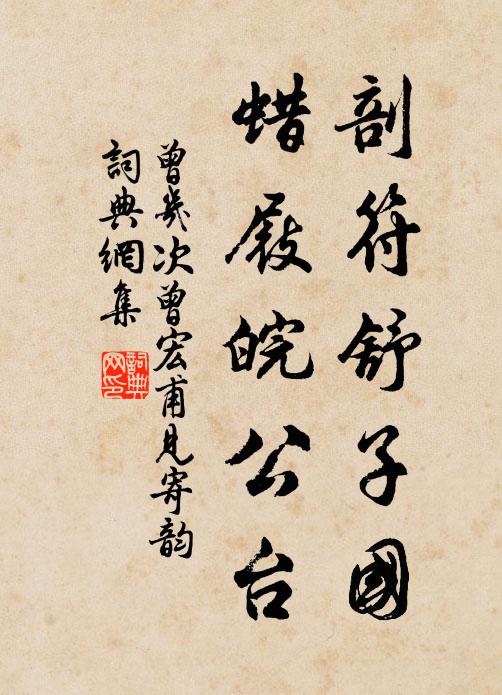 剖符舒子國
蜡屐皖公台
曾幾次曾宏甫見寄韵
詞典網集
詞典網印